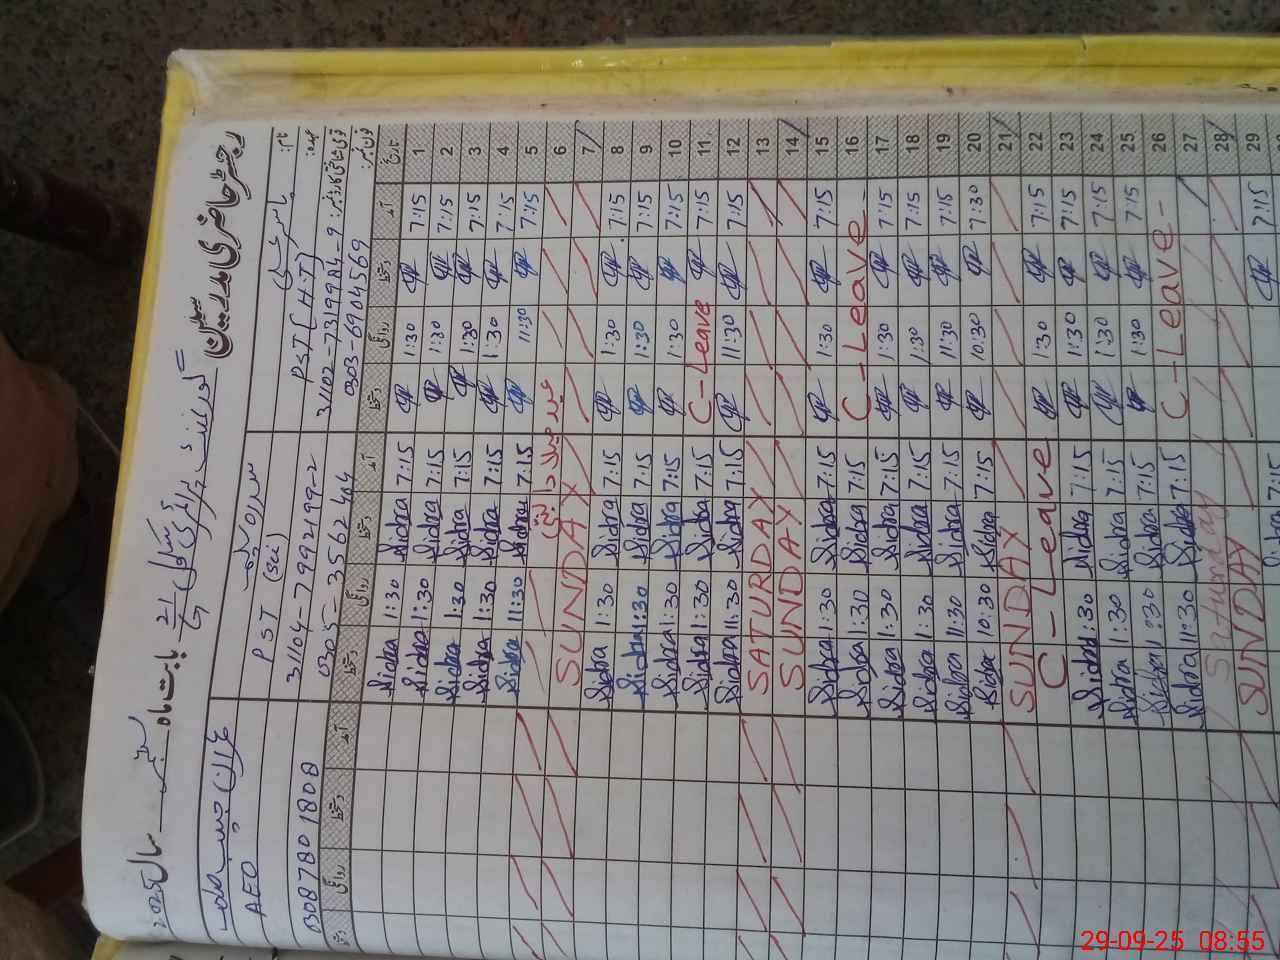 رجسٹر حاضری مدرسین
گورنمنٹ پرائمری سکول بابت ماہ ستمبر سال 2025
نام:
عہدہ: PST (H.T)
قومی شناختی کارڈ نمبر: 31102-7319984-9
فون نمبر: 0303-6904569
PST (sci)
31104-7992199-2
0305-3562404
AEO
0308 780 1808
تاریخ آمد دستخط روانگی دستخط آمد دستخط روانگی دستخط آمد دستخط روانگی دستخط
1 7:15 1:30 7:15 Sidra 1:30 Sidra
2 7:15 1:30 7:15 Sidra 1:30 Sidra
3 7:15 1:30 7:15 Sidra 1:30 Sidra
4 7:15 1:30 7:15 Sidra 1:30 Sidra
5 7:15 11:30 7:15 Sidra 11:30 Sidra
6 عید میلاد النبی
7 SUNDAY
8 7:15 1:30 7:15 Sidra 1:30 Sidra
9 7:15 1:30 7:15 Sidra 1:30 Sidra
10 7:15 1:30 7:15 Sidra 1:30 Sidra
11 7:15 C-Leave 7:15 Sidra 1:30 Sidra
12 7:15 11:30 7:15 Sidra 11:30 Sidra
13 SATURDAY
14 SUNDAY
15 7:15 1:30 7:15 Sidra 1:30 Sidra
16 C-Leave- 7:15 Sidra 1:30 Sidra
17 7:15 1:30 7:15 Sidra 1:30 Sidra
18 7:15 1:30 7:15 Sidra 1:30 Sidra
19 7:15 11:30 7:15 Sidra 11:30 Sidra
20 7:30 10:30 7:15 Sidra 10:30 Sidra
21 SUNDAY
22 7:15 1:30 C-Leave
23 7:15 1:30 7:15 Sidra 1:30 Sidra
24 7:15 1:30 7:15 Sidra 1:30 Sidra
25 7:15 1:30 7:15 Sidra 1:30 Sidra
26 C-Leave- 7:15 Sidra 11:30 Sidra
27 Saturday
28 SUNDAY
29 7:15 7:15 Sidra
29-09-25 08:55